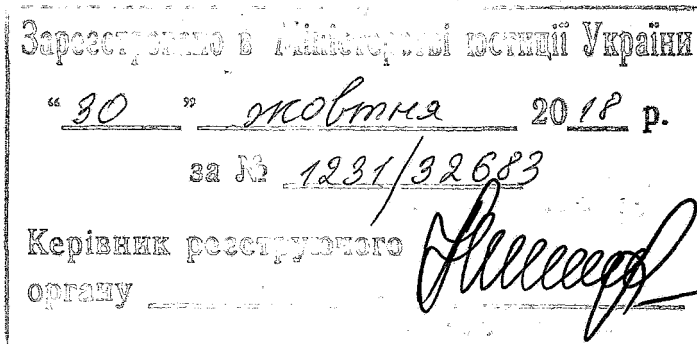 Зареєстровано в Міністерстві юстиції України
“ 30 ” жовтня 2018 р.
за № 1231/32683
Керівник реєструючого
органу